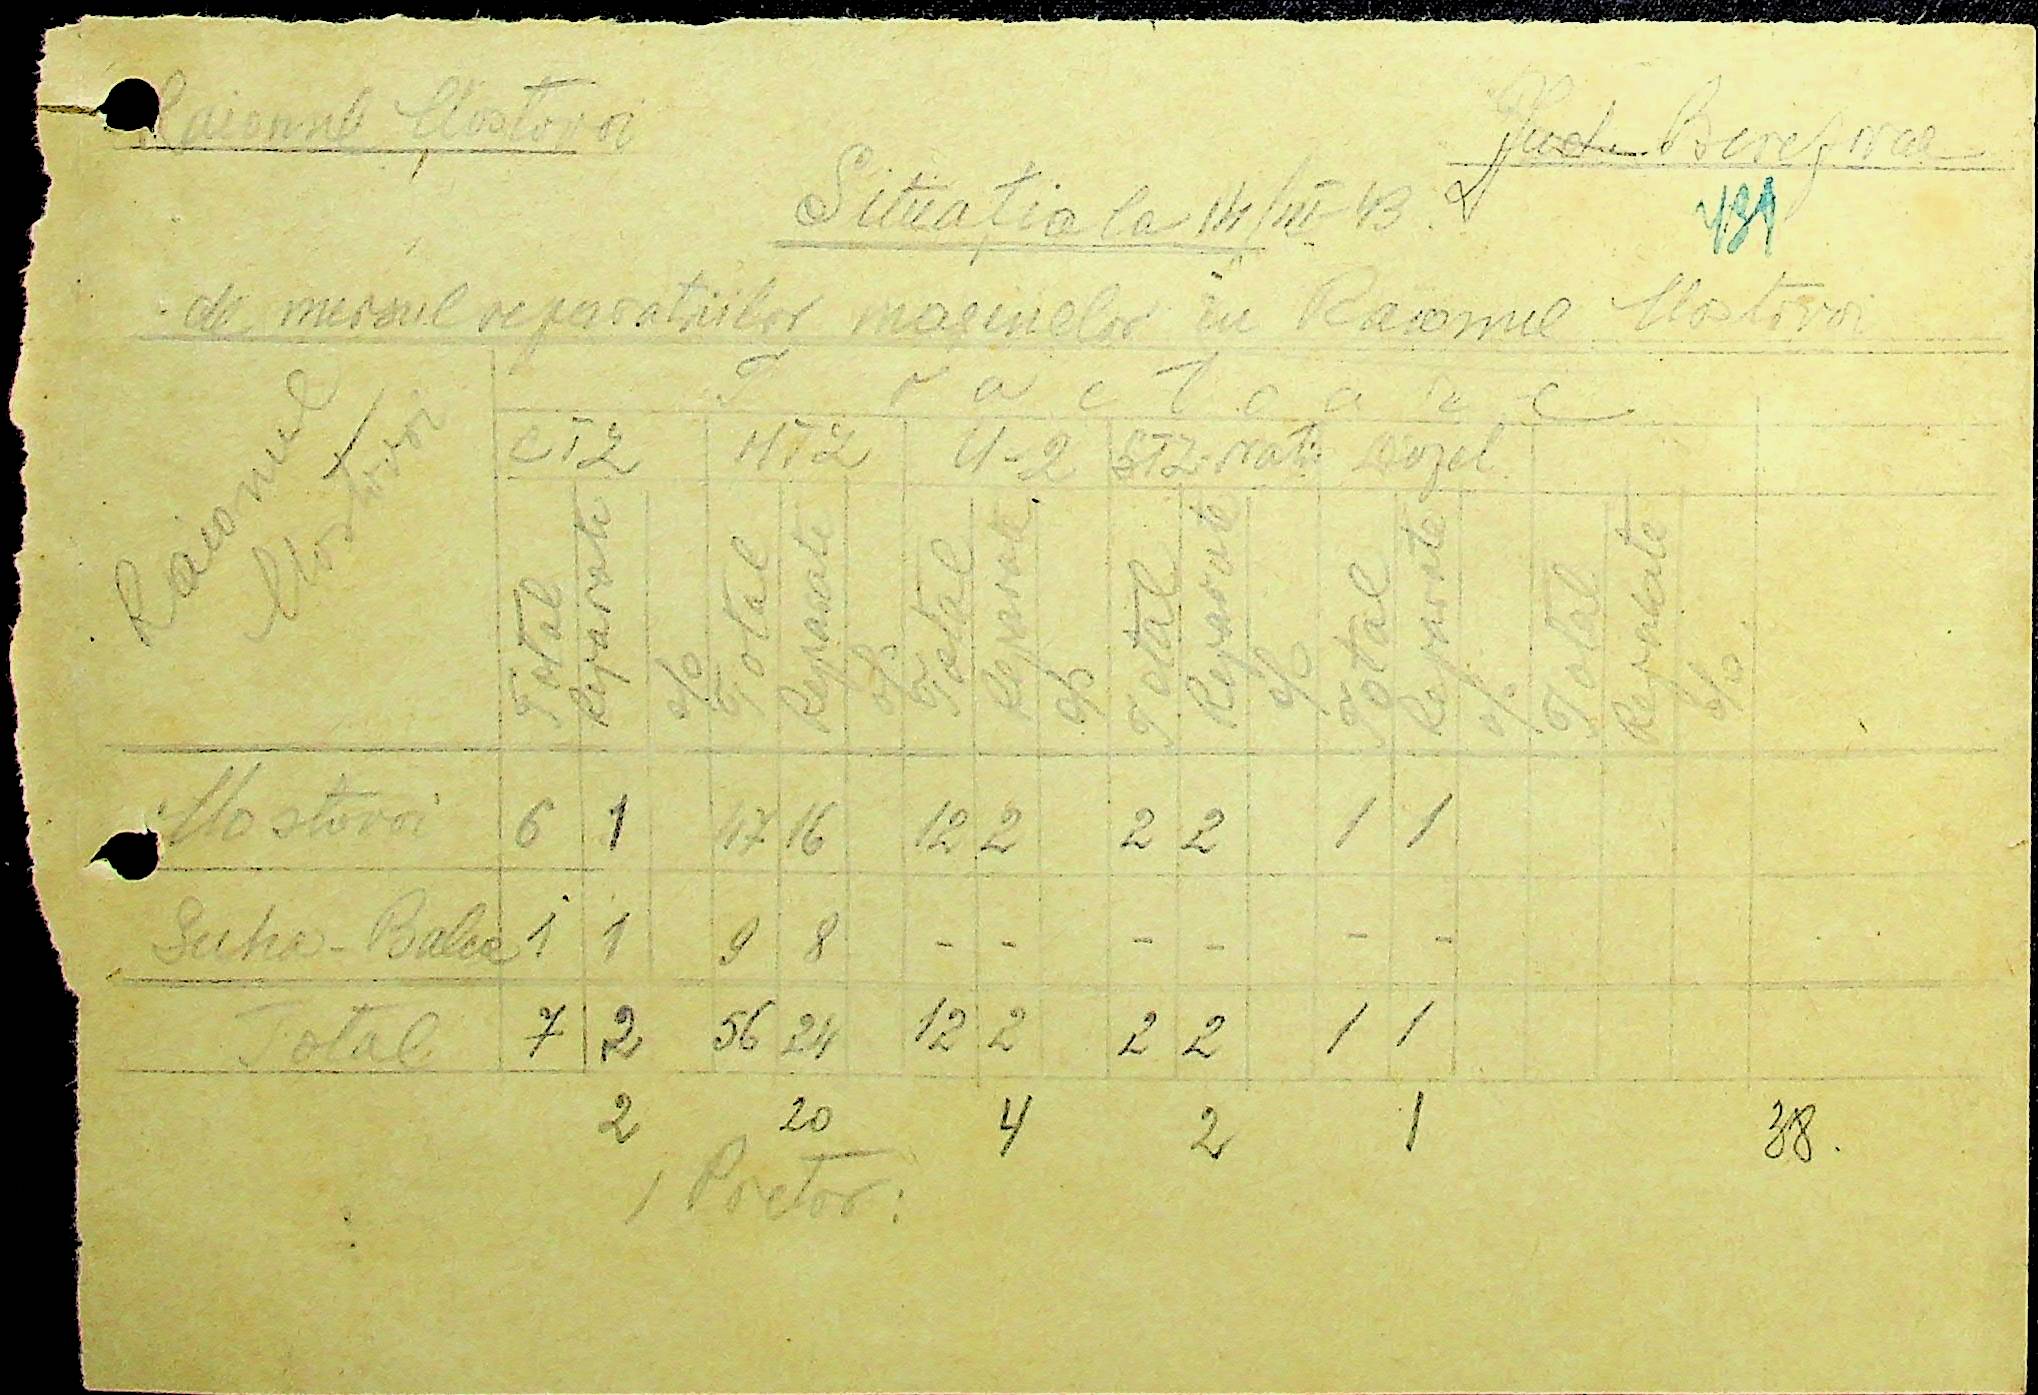 Raionul Mostovoi
Jud. Berezovca
Situatia la 14/III-43.
431
de mersul reparatiilor maşinelor în Raionul Mostovoi
Raionul Mostovoi
Tractoare
CTZ HTZ U-2 STZ-nati Dizel
Total Reparate % Total Reparate % Total Reparate % Total Reparate % Total Reparate % Total Reparate %
Mostovoi 6 1 47 16 12 2 2 2 1 1
Suha-Balca 1 1 9 8 - - - - - -
Total 7 2 56 24 12 2 2 2 1 1
2 20 4 2 1 38.
Pretor: